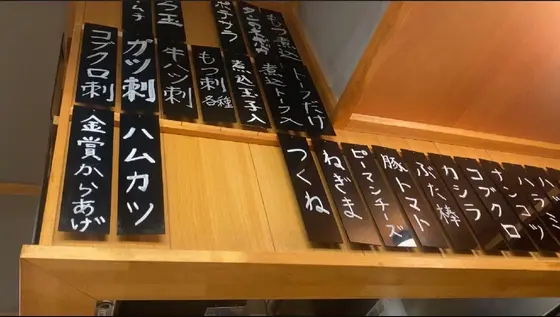 コブクロ刺
ガツ刺
牛ハツ刺
もつ刺
各種
煮込玉子入
煮込トーフ入
もつ煮込
トーフだけ
ポテサラ
金賞からあげ
ハムカツ
つくね
ねぎま
ピーマンチーズ
豚トマト
ぶた棒
カシラ
コブクロ
ナンコツ